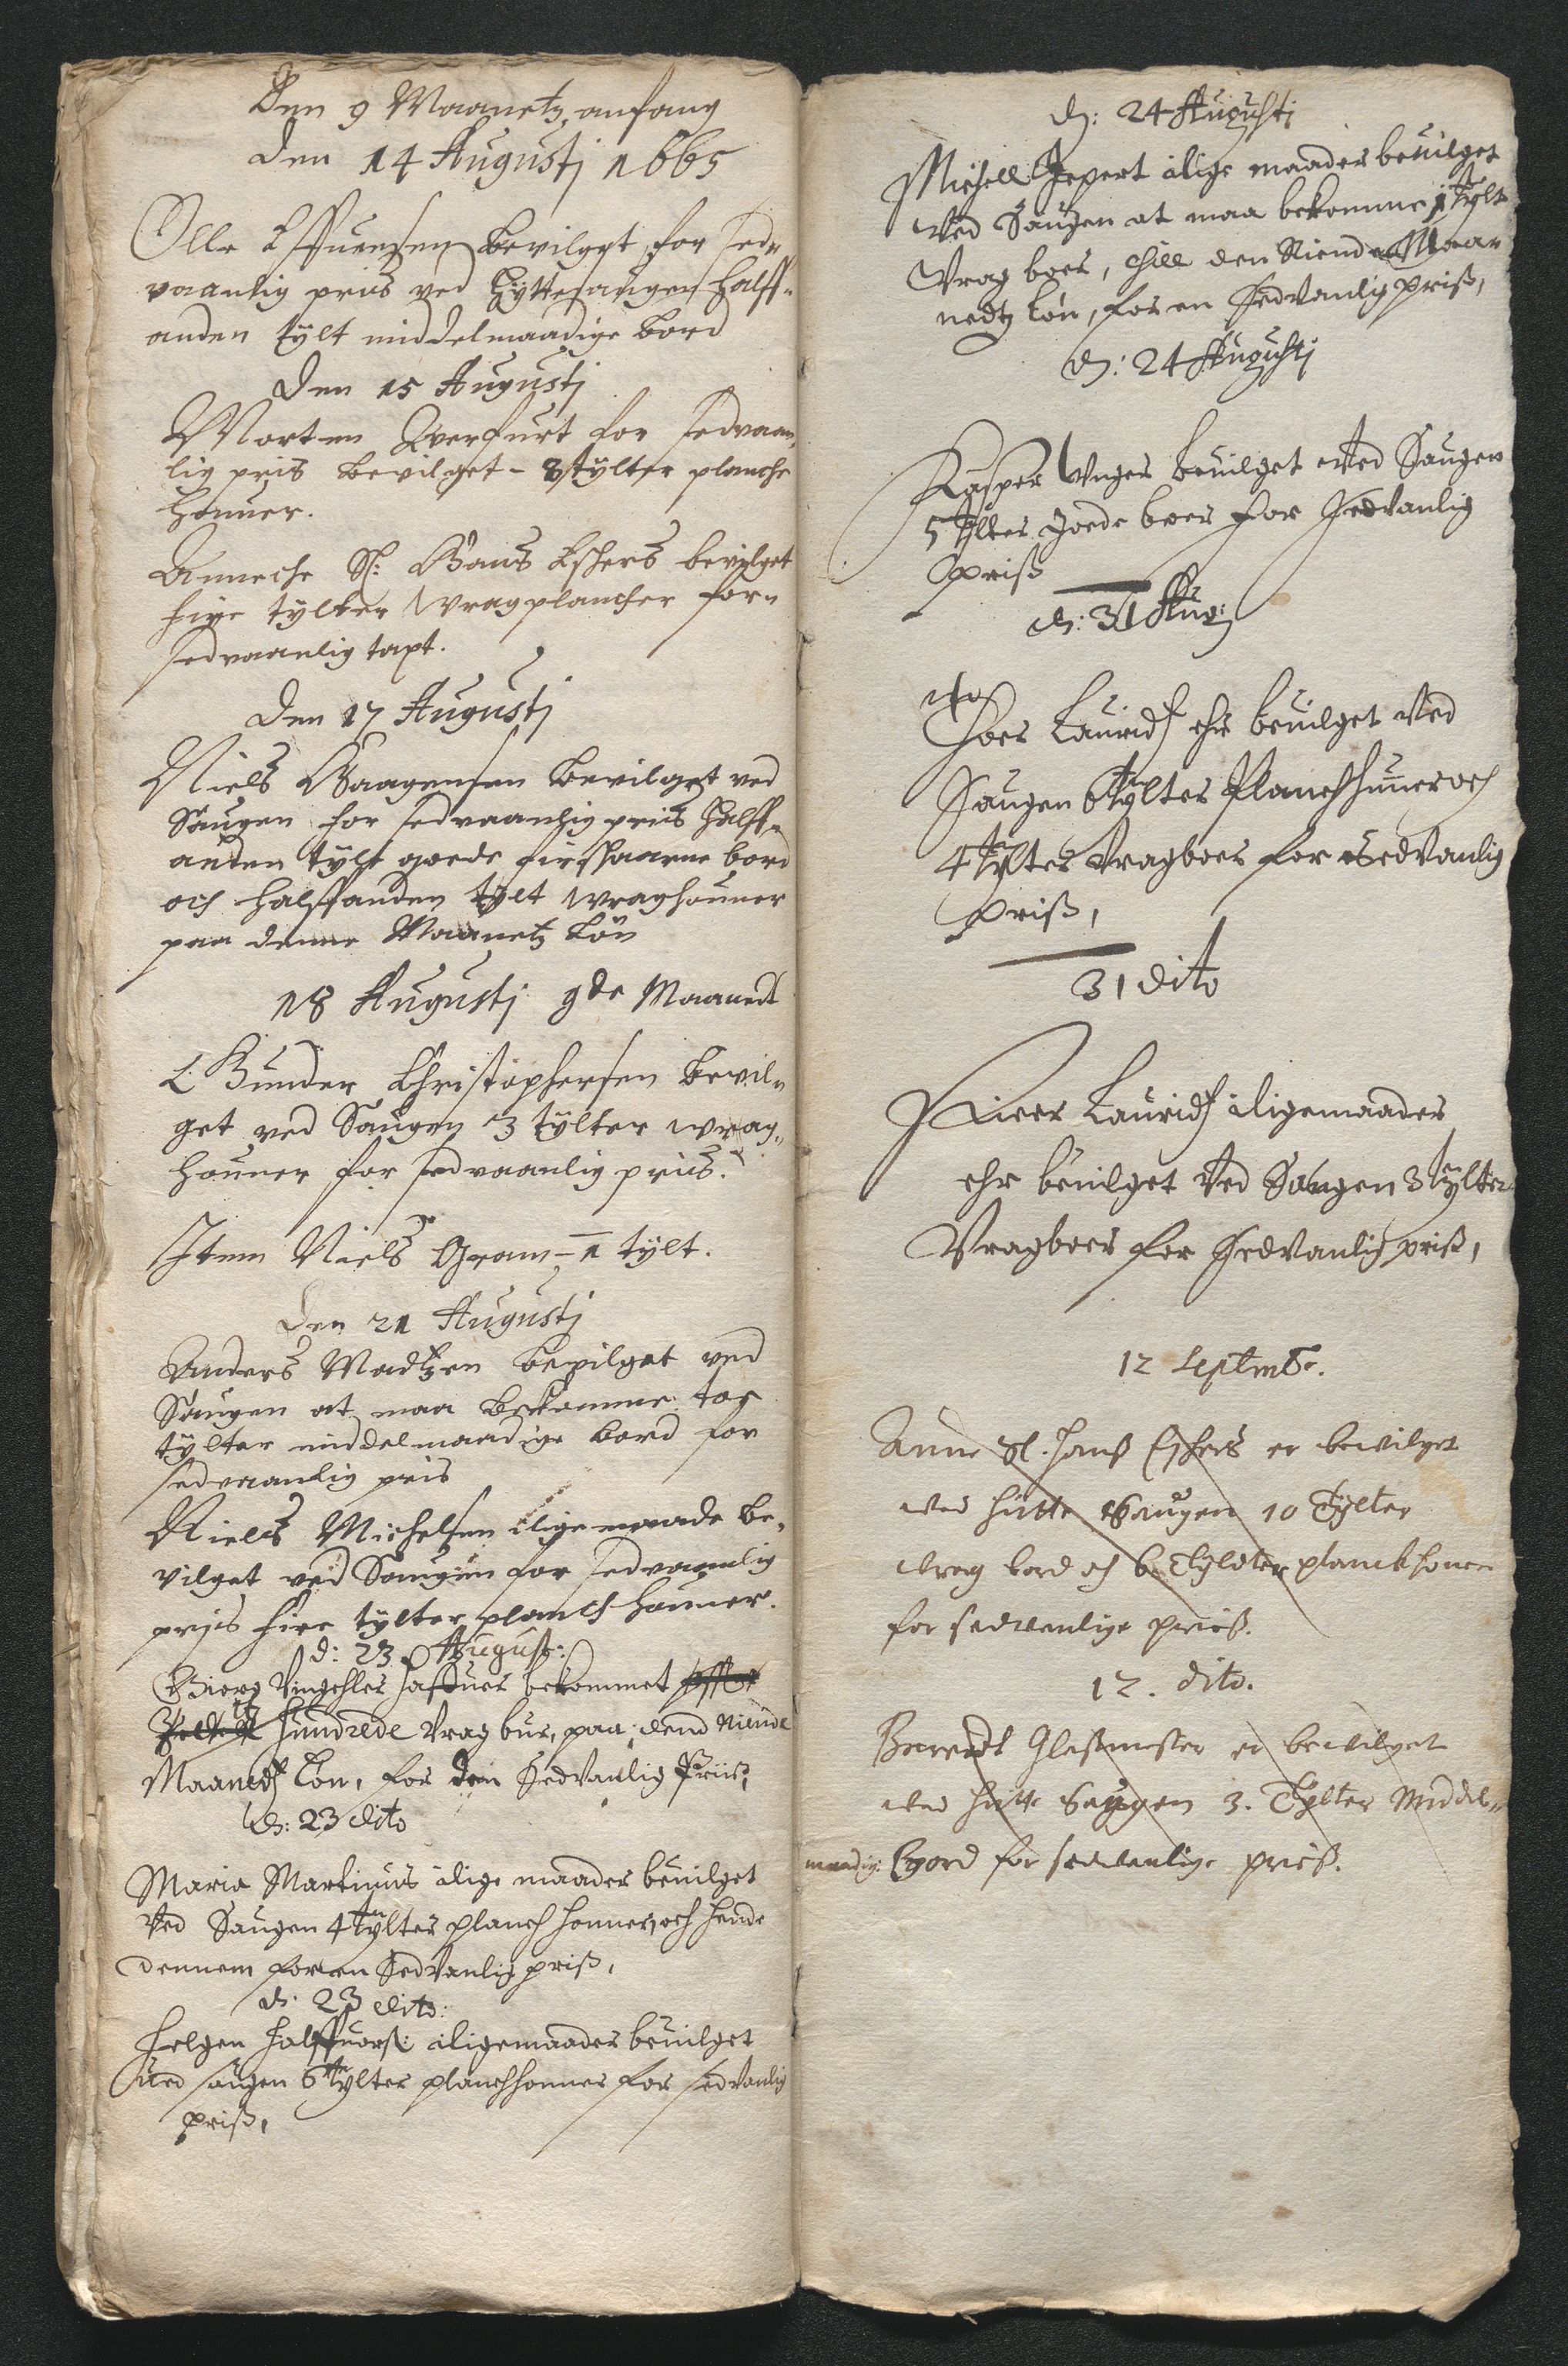 Den 9 Maanetz anfang
Den 14 Augustj 1665
Olle Effuensen bevilget for sed„
vaanlig priis ved Hyttesaugen halff„
anden tylt middelmaadige bord
Den 15 Augustj
Morten Querfurt for sedvaan„
lig pris bevilget – 8 tylter planche
honner.
Anneche Sl: Hans Eschers bevilget
fire tylter Wragplancher for„
sedvaanlig tapt.
Den 17 Augustj
Niels Haagensen bevilget ved
Saugen for sedvaanlig priis halff„
anden tylt goede firskaarne bord
och halffanden tylt wraghonner
paa denne Maanetz Lön
18 Augustj 9de Maanedt
Gunder Christophersen bevil„
get ved Saugen 3 tylter wrag„
honner for sedvaanlig priis.
Item Niels Gram – 1 tylt.
Den 21 Augustj
Anders Madtzen bevilget ved
Saugen at maa bekomme toe
tylter middelmaadige bord for
sedvaanlig pris
Niels Michelsen ilige maade be„
vilget ved Saugen for sedvaanlig
prjs fire tylter planch honner.
d: 23 August:
Giörg haffuer bekommet
hundrede Vrag bur, paa, dend Niende
Maanedtz Lön, for den Sedvanlig Priiß,
d: 23 dito
Maria Martinus ilige maader beuilget
Ved Saugen 4 tylter planch honner, och hende
dennem foren SedVanlig priß,
d: 23 dito:
Helgen Halffuorß: iligemaader beuilget
ued saugen 6 tylter planchhonner for sedvanlig
priß,
d: 24 Augustj
Michell Jepert ilige maader beuilget
Ved Saugen at maa bekomme 1 tylt
Vrag boer, thill den Niende Maa„
nedtz Lön, for en SedVanlig priß,
d: 24 Augustj
Kasper Unger beuilget Ved Saugen
5 tylter goede boer for Sedvanlig
priß
d: 31 Aug:
Thoer Lauridtz ehr beuilget Ved
Saugen 6 tylter Planchhuner och
4 tylter Vragboer for SedVanlig
priß,
31 dito
Peer Lauridtz iligemaader
ehr beuilget Ved Saugen 3 tylter
Vragboer for SedVanlig priß,
12 Septmbr.
Anne Sl. Hanß Eschers er bewilget
wed hütte Saugen 10 Tylter
wrag bord och 6 Tyldter planckhoner
for sedwenlige priiß.
12. dito.
Berendt Glaßmester er bewilget
wed hütte Saugen 3. Tylter Middel„
maadig: bord for sedwenlige priiß.